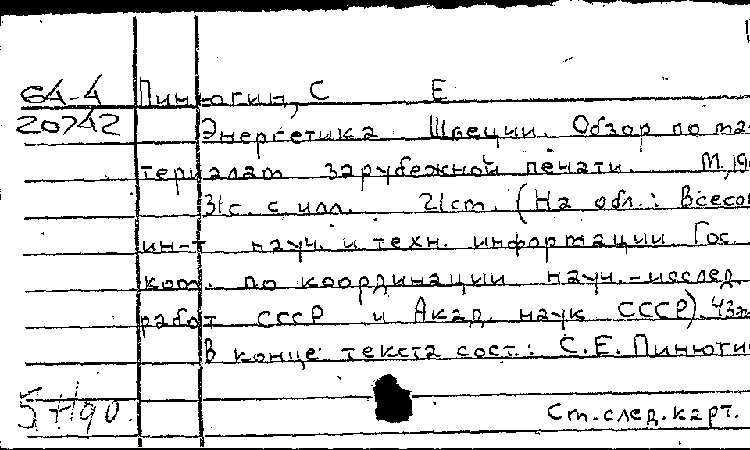 64-4 Пинюгин, С Е
20742 Энергетика Швеции. Обзор по ма-
териалам зарубежной печати. М., 19
31с. с илл. 21см. (На обл.: Всесою
ин-т науч. и техн. информации Гос.
ком. по координации науч.-исслед.
работ СССР и Акад. наук СССР). 43
В конце текста сост.: С.Е. Пинюгин
Ст.след.карт.